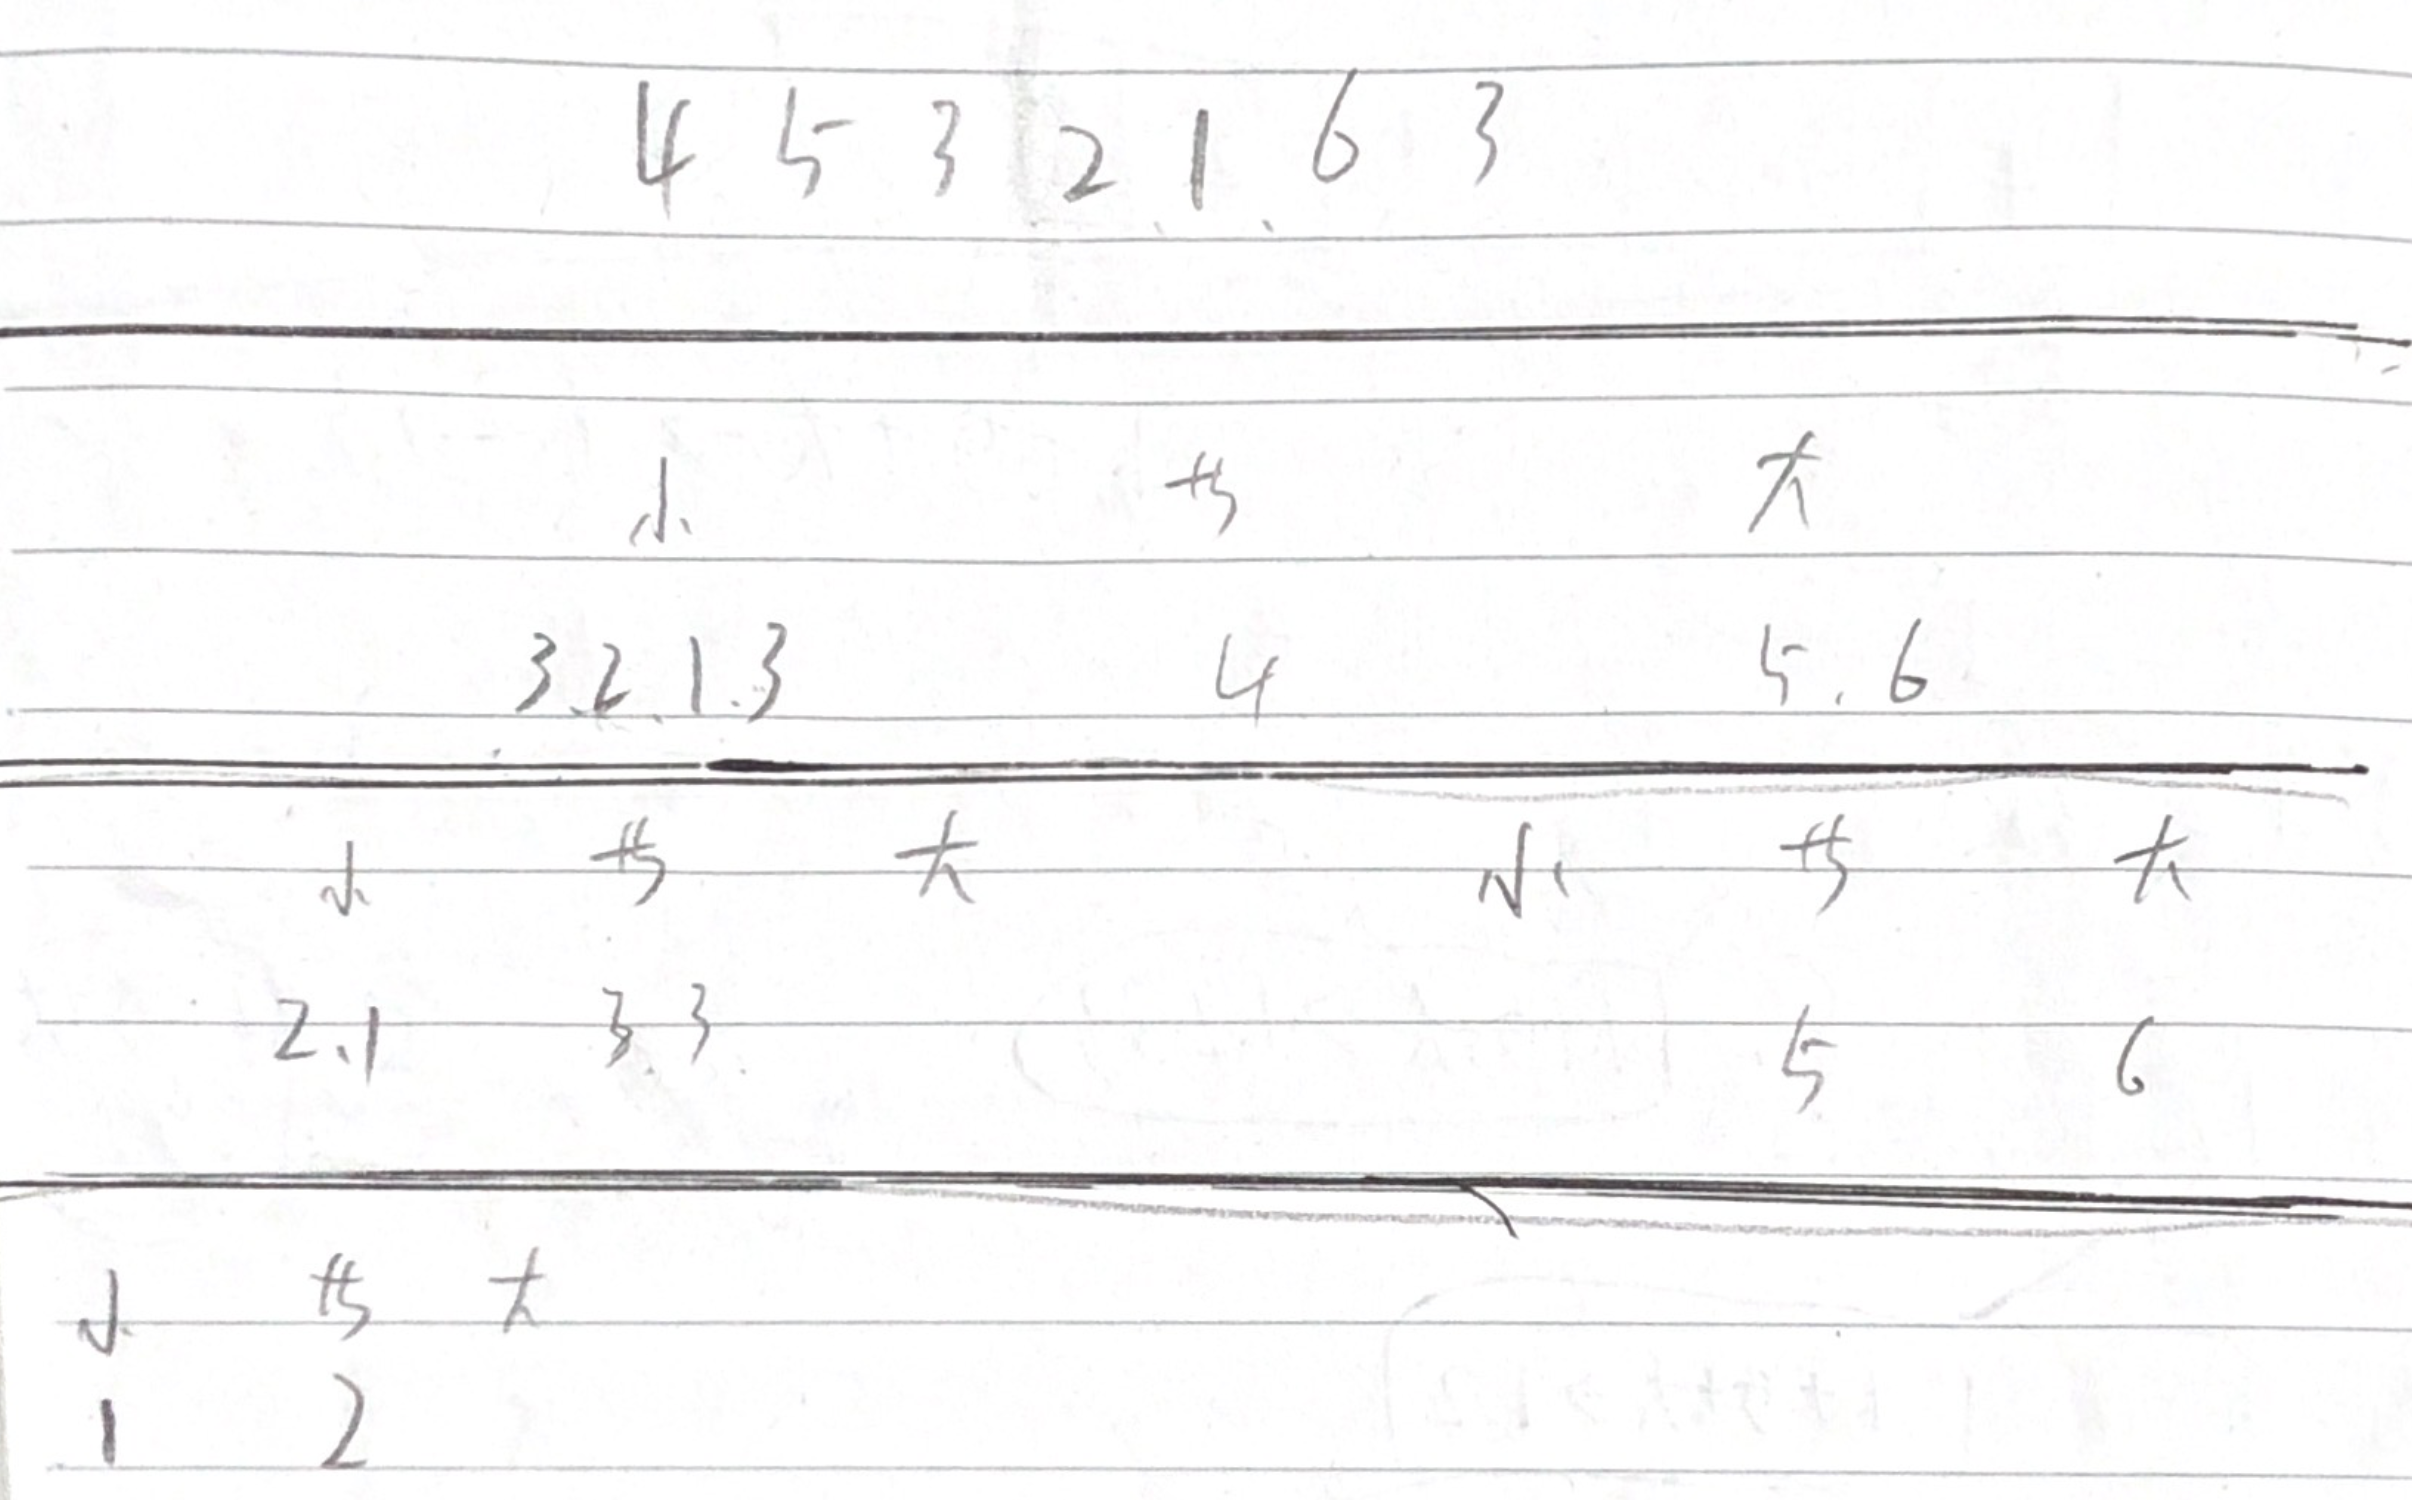 4 5 3 2 1 6 3
小 廿 大
3.2.1.3 4 5.6
小 廿 大 小 廿 大
2.1 3.3 5 6
小 廿 大
1 2